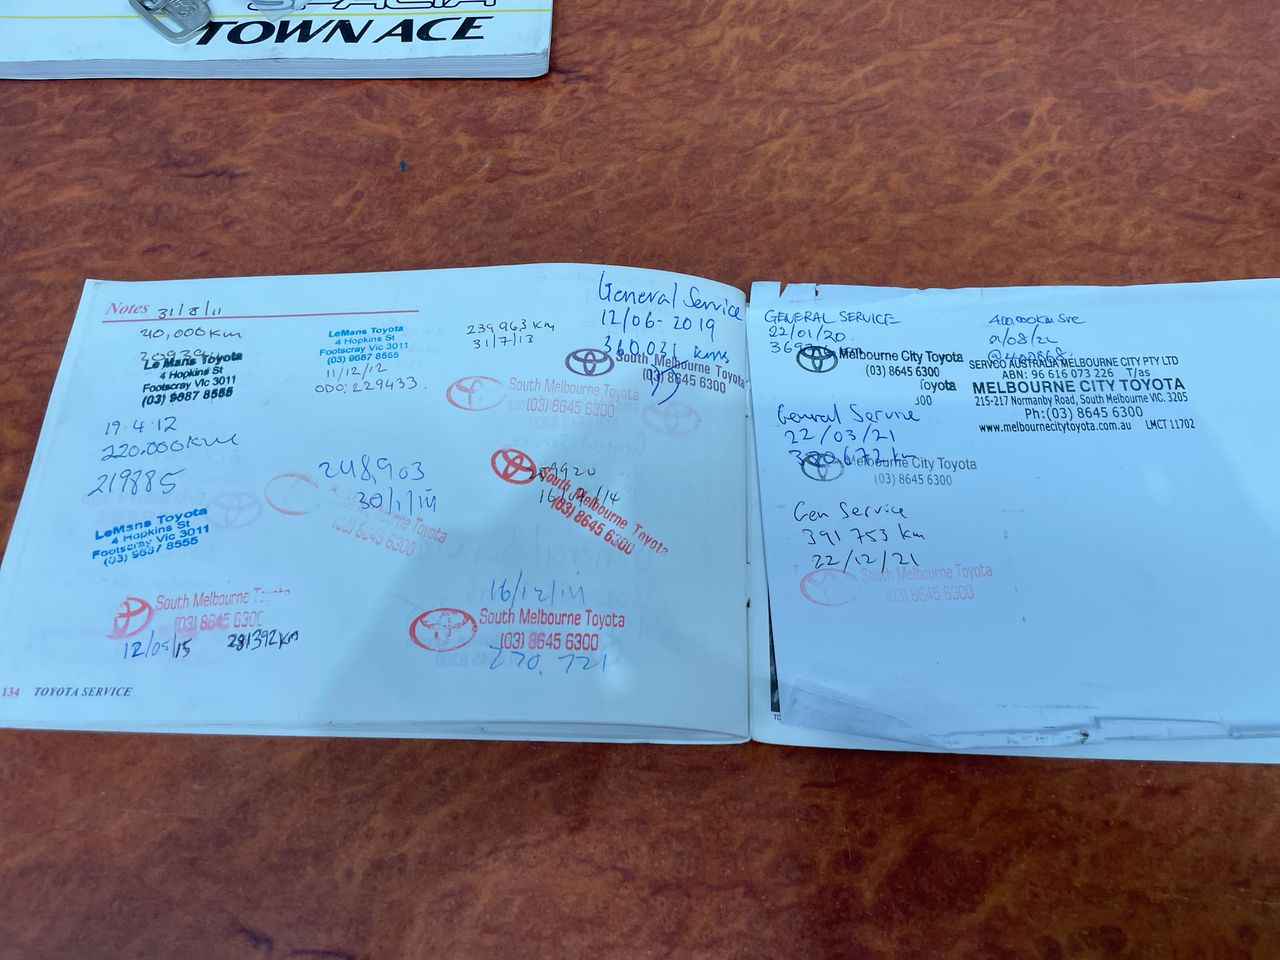 SPACIA
TOWN ACE
Notes 31/8/11
40,000km
Le Mans Toyota
4 Hopkins St
Footscray Vic 3011
(03) 9687 8555
19.4.12
220.000km
219885
LeMans Toyota
4 Hopkins St
Footscray Vic 3011
(03) 9687 8555
South Melbourne Toyota
(03) 8645 6300
12/05/15 281392km
LeMans Toyota
4 Hopkins St
Footscray Vic 3011
(03) 9687 8555
11/12/12
ODO: 229433.
248,903
30/1/14
South Melbourne Toyota
(03) 8645 6300
239963 km
31/7/13
South Melbourne Toyota
(03) 8645 6300
South Melbourne Toyota
(03) 8645 6300
16/12/14
South Melbourne Toyota
(03) 8645 6300
270,721
General Service
12/06-2019
360,021 kms
South Melbourne Toyota
(03) 8645 6300
134 TOYOTA SERVICE
GENERAL SERVICE
22/01/20
Melbourne City Toyota
(03) 8645 6300
Toyota
General Service
22/03/21
Melbourne City Toyota
(03) 8645 6300
Gen Service
391753 km
22/12/21
South Melbourne Toyota
(03) 8645 6300
400,000km Sve
SERVCO AUSTRALIA MELBOURNE CITY PTY LTD
ABN: 96 616 073 226 T/as
MELBOURNE CITY TOYOTA
215-217 Normanby Road, South Melbourne VIC. 3205
Ph:(03) 8645 6300
www.melbournecitytoyota.com.au LMCT 11702